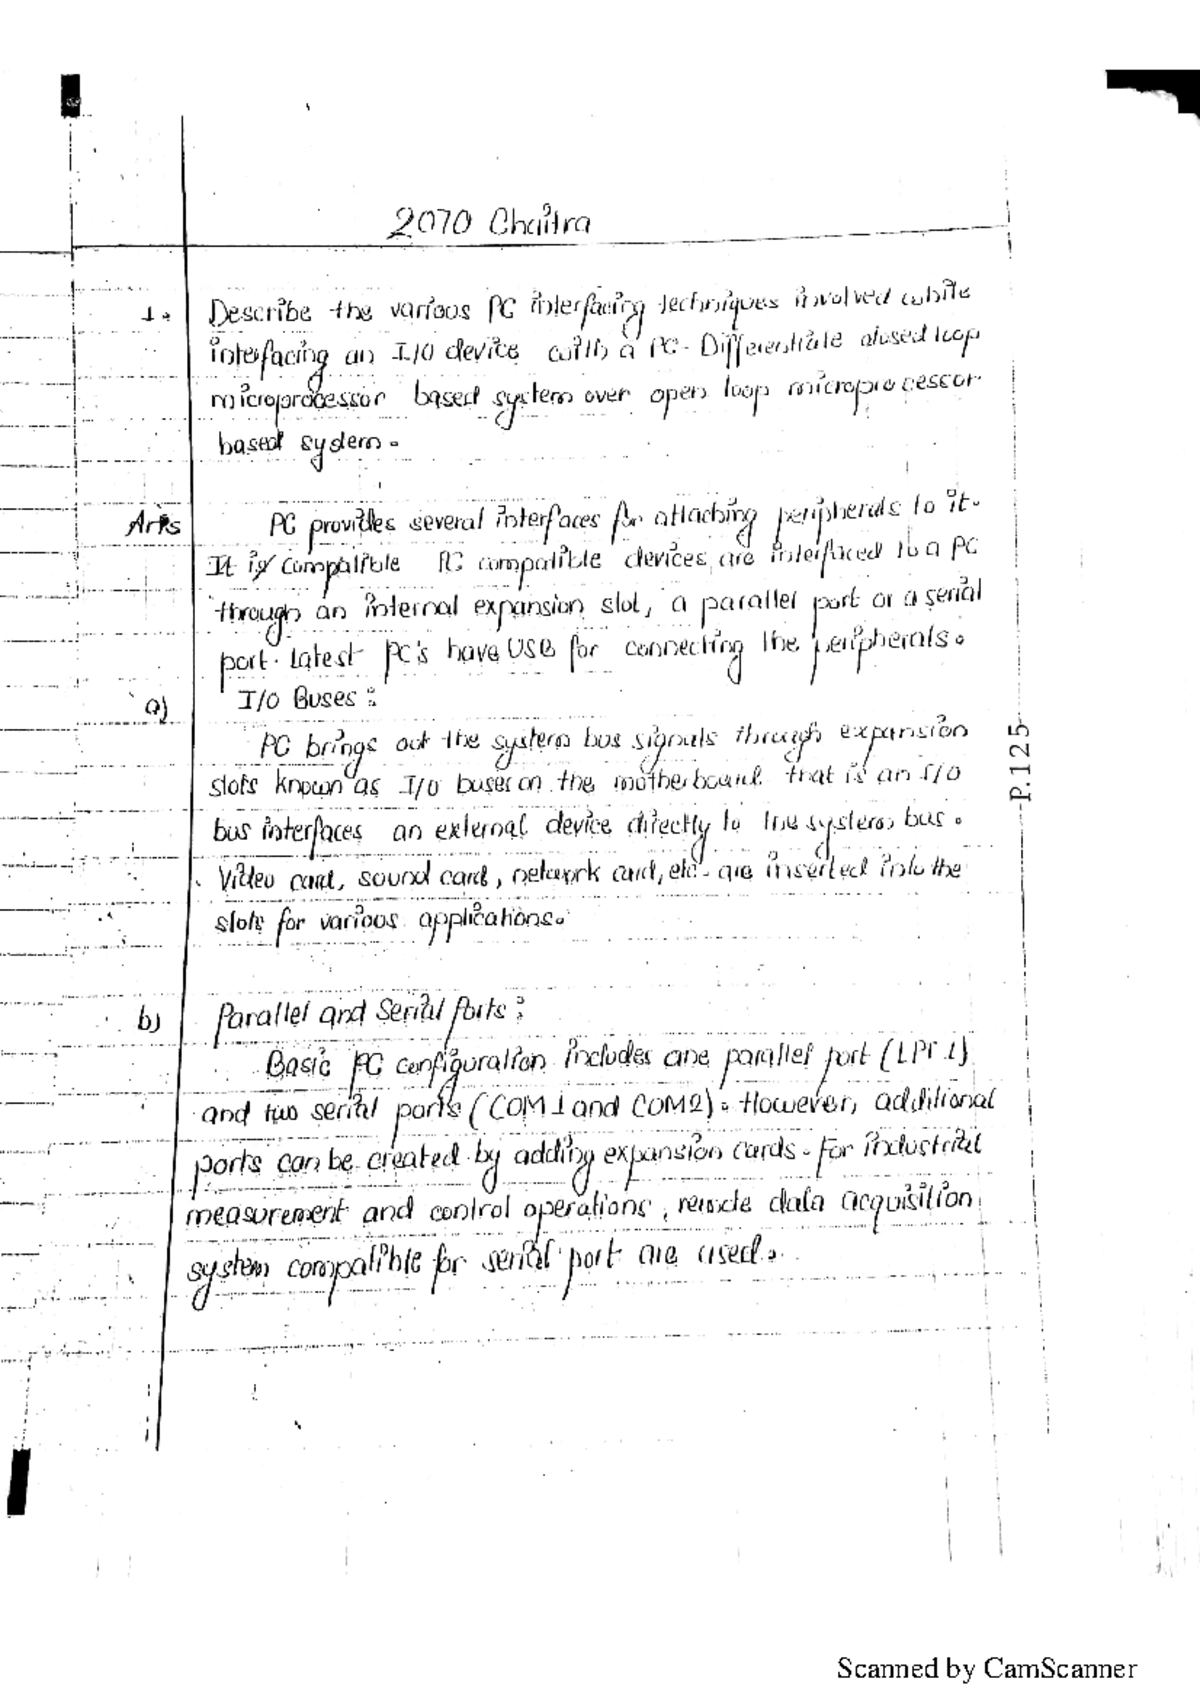 2070 Chaitra
1. Describe the various PC interfacing techniques involved while
interfacing an I/O device with a PC. Differentiate closed loop
microprocessor based system over open loop microprocessor
based system.
Ans PC provides several interfaces for attaching peripherals to it.
It is compatible PC compatible devices are interfaced to a PC
through an internal expansion slot, a parallel port or a serial
port. Latest PC's have USB for connecting the peripherals.
a) I/O Buses:
PC brings out the system bus signals through expansion
slots known as I/O buses on the motherboard that is an I/O
bus interfaces an external device directly to the system bus.
Video card, sound card, network card, etc. are inserted into the
slots for various applications.
P.125
b) Parallel and Serial Ports:
Basic PC configuration includes one parallel port (LPT1)
and two serial ports (COM1 and COM2). However, additional
ports can be created by adding expansion cards. For industrial
measurement and control operations, remote data acquisition
system compatible for serial port are used.
Scanned by CamScanner